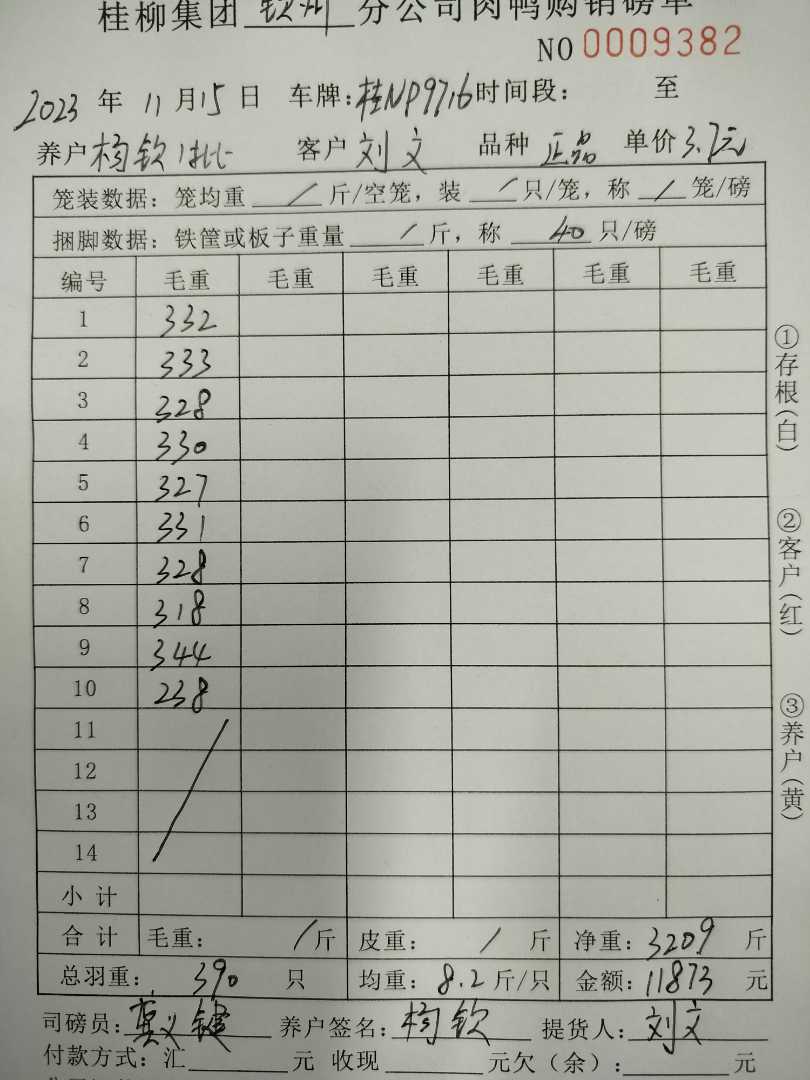 桂柳集团 钦州 分公司肉鸭购销磅单
NO 0009382
2023 年 11 月 15 日 车牌:桂NP9716 时间段: 至
养户 杨钦1批 客户 刘文 品种 正品 单价 3.7元
笼装数据:笼均重 / 斤/空笼,装 / 只/笼,称 / 笼/磅
捆脚数据:铁筐或板子重量 / 斤,称 40 只/磅
编号 毛重 毛重 毛重 毛重 毛重 毛重
1 332
2 333
3 328
4 330
5 327
6 331
7 328
8 318
9 344
10 238
11
12
13
14
小计
合计 毛重: / 斤 皮重: / 斤 净重:3209 斤
总羽重: 390 只 均重:8.2 斤/只 金额:11873 元
司磅员:莫义键 养户签名:杨钦 提货人:刘文
付款方式:汇 元 收现 元欠(余): 元
①存根(白)
②客户(红)
③养户(黄)